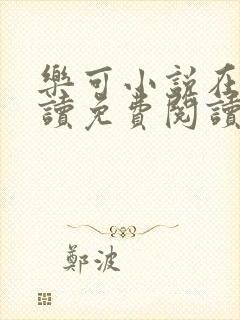 樂可小說在
讀免費閱讀
鄭波